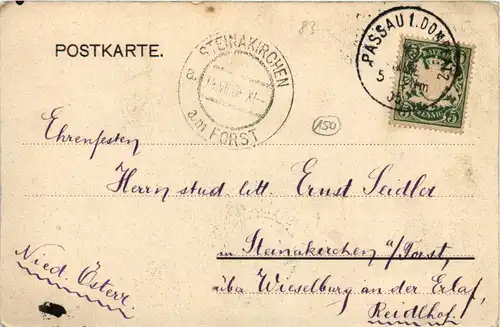 83
POSTKARTE.
STEINAKIRCHEN
a.m FORST
PASSAU 1.
BAYERN
5 5
PFENNIG
150
Ehrenfesten
Herrn stud. litt. Ernst Seidler
in Steinakirchen a/Forst,
über Wieselburg an der Erlaf,
Nied. Österr.
Reidlhof.